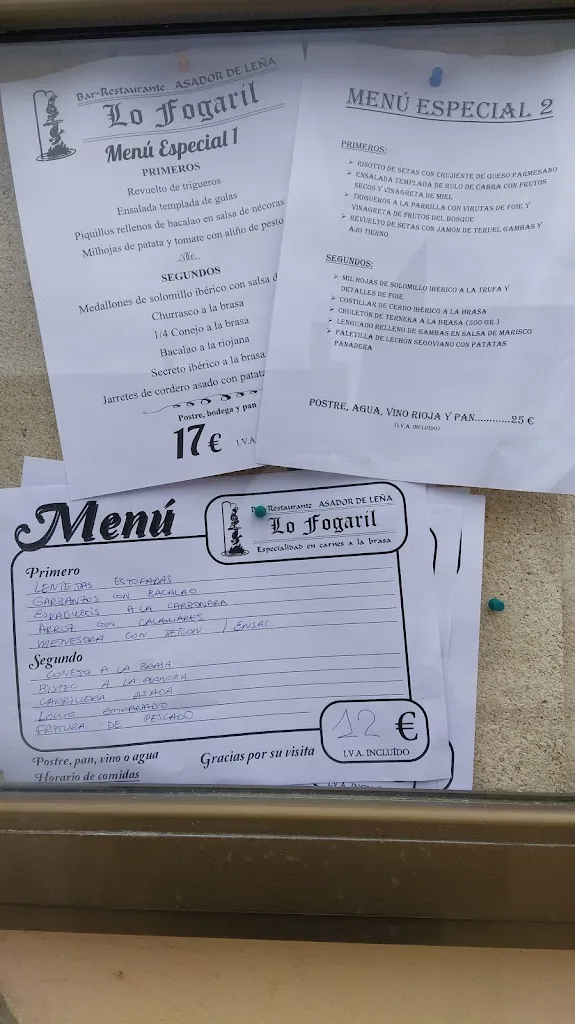 Bar-Restaurante ASADOR DE LEÑA
Lo Fogaril
Menú Especial 1
PRIMEROS
Revuelto de trigueros
Ensalada templada de gulas
Piquillos rellenos de bacalao en salsa de nécoras
Milhojas de patata y tomate con aliño de pesto
SEGUNDOS
Medallones de solomillo ibérico con salsa d
Churrasco a la brasa
1/4 Conejo a la brasa
Bacalao a la riojana
Secreto ibérico a la brasa
Jarretes de cordero asado con patata
Postre, bodega y pan
17€ I.V.A
MENÚ ESPECIAL 2
PRIMEROS:
➢ RISOTTO DE SETAS CON CRUJIENTE DE QUESO PARMESANO
➢ ENSALADA TEMPLADA DE RULO DE CABRA CON FRUTOS
SECOS Y VINAGRETA DE MIEL
➢ TRIGUEROS A LA PARRILLA CON VIRUTAS DE FOIE Y
VINAGRETA DE FRUTOS DEL BOSQUE
➢ REVUELTO DE SETAS CON JAMÓN DE TERUEL GAMBAS Y
AJO TIERNO
SEGUNDOS:
➢ MIL HOJAS DE SOLOMILLO IBÉRICO A LA TRUFA Y
DETALLES DE FOIE
➢ COSTILLAR DE CERDO IBÉRICO A LA BRASA
➢ CHULETÓN DE TERNERA A LA BRASA (500 GR.)
➢ LENGUADO RELLENO DE GAMBAS EN SALSA DE MARISCO
➢ PALETILLA DE LECHON SEGOVIANO CON PATATAS
PANADERA
POSTRE, AGUA, VINO RIOJA Y PAN............25 €
(I.V.A. INCLUIDO)
Menú
Restaurante ASADOR DE LEÑA
Lo Fogaril
Especialidad en carnes a la brasa
Primero
LENTEJAS ESTOFADAS
GARBANZOS CON BACALAO
ESPAGUETIS A LA CARBONARA
ARROZ CON CALAMARES
MENESTRA CON / ENSAL.
Segundo
CONEJO A LA BRASA
BISTEC A LA PLANCHA
CARRILLERA ASADA
LOMO EMPANADO
FRITURA DE PESCADO
12 €
I.V.A. INCLUÍDO
Postre, pan, vino o agua
Gracias por su visita
Horario de comidas